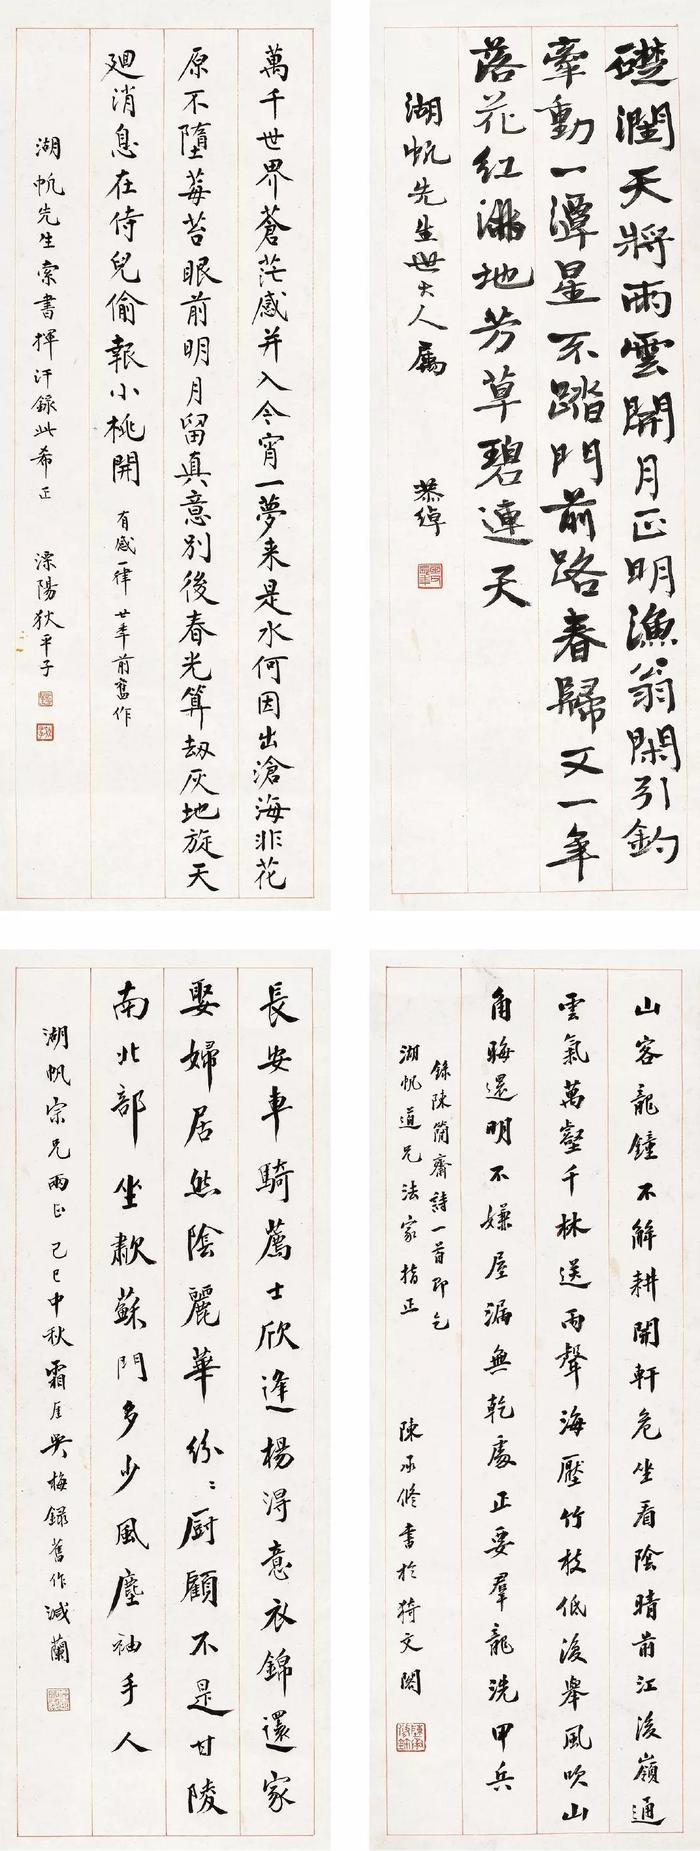 礎潤天將雨雲開月正明漁翁閑引釣
牽動一潭星不踏門前路春歸又一年
落花紅滿地芳草碧連天
湖帆先生世大人屬
恭綽
萬千世界蒼茫感并入今宵一夢来是水何因出滄海非花
原不墮莓苔眼前明月留真意別後春光算劫灰地旋天
廻消息在侍兒偷報小桃開 有感一律 廿年前舊作
湖帆先生索書揮汗錄此希正 溧陽狄平子
山客龍鐘不解耕開軒危坐看陰晴前江後嶺通
雲氣萬壑千林送雨聲海壓竹枝低復舉風吹山
角晦還明不嫌屋漏無乾處正要羣龍洗甲兵
錄陳簡齋詩一首即乞
湖帆道兄法家指正 陳承修書於猗文閣
長安車騎薦士欣逢楊得意衣錦還家
娶婦居然陰麗華紛〻厨顧不是甘陵
南北部坐歎蘇門多少風塵袖手人
湖帆宗兄兩正 己巳中秋霜厓吳梅錄舊作減蘭